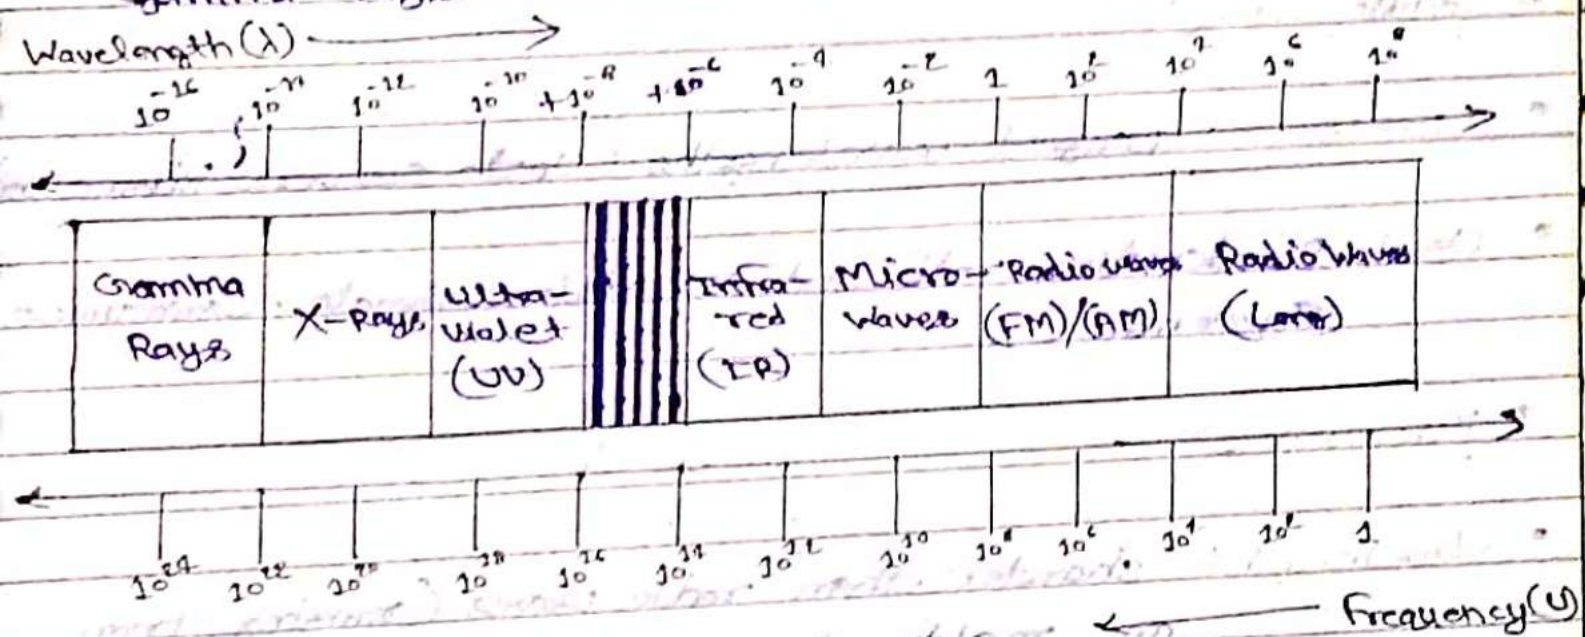 Wavelength (λ) →
10⁻¹⁶ 10⁻¹⁴ 10⁻¹² 10⁻¹⁰ 10⁻⁸ 10⁻⁶ 10⁻⁴ 10⁻² 1 10² 10⁴ 10⁶ 10⁸
Gamma Rays
X-Rays
Ultra-violet (UV)
Infra-red (IR)
Micro-waves
Radio wave (FM)/(AM)
Radio Waves (Long)
10²⁴ 10²² 10²⁰ 10¹⁸ 10¹⁶ 10¹⁴ 10¹² 10¹⁰ 10⁸ 10⁶ 10⁴ 10² 1
← Frequency (υ)